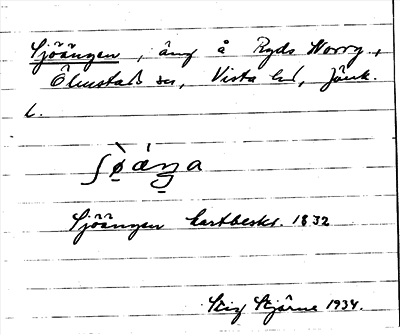 Sjöängen, äng å Ryds Norrg.,
Ölmstad sn, Vista hd, Jönk.
l.
Sjöängen kartbeskr. 1832
Stig Stjärne 1934.